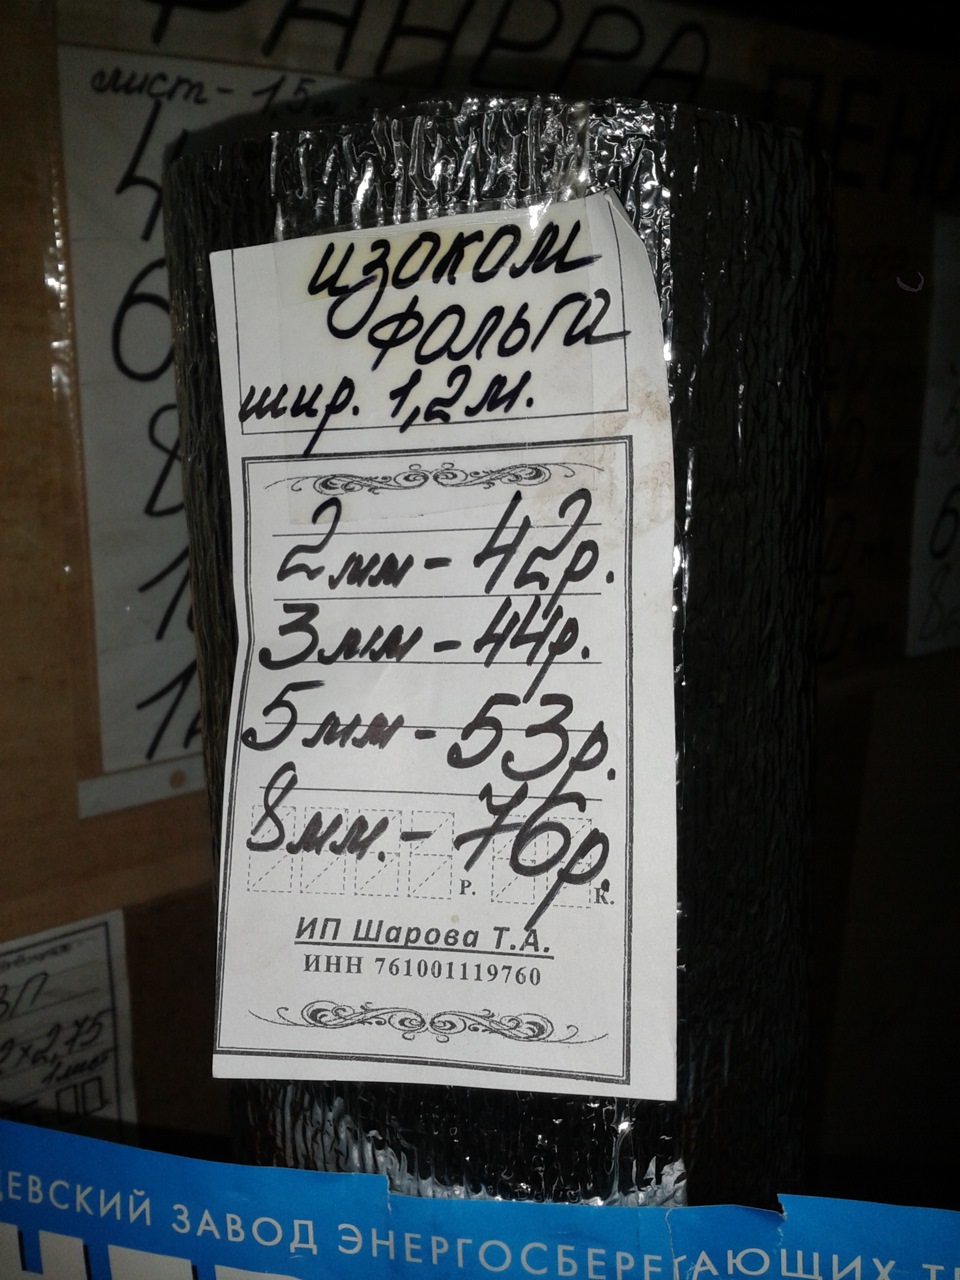 ФАНЕРА
лист - 1,5м
4
6
8
изоком
фольга
шир. 1,2м.
2мм - 42р.
3мм - 44р.
5мм - 53р.
8мм. - 76р.
Р. К.
ИП Шарова Т.А.
ИНН 761001119760
2,75
1 лист
ЕВСКИЙ ЗАВОД ЭНЕРГОСБЕРЕГАЮЩИХ Т